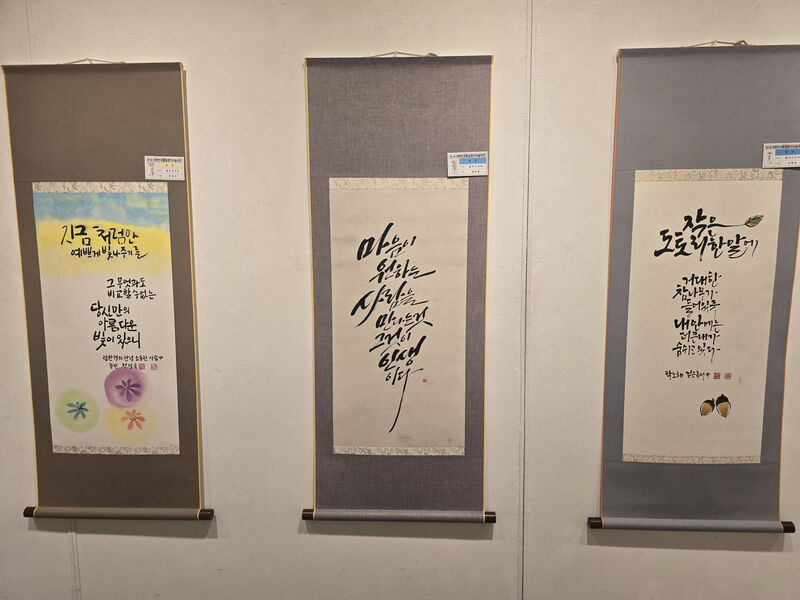 지금처럼만
예쁘게 빛나주기를
그 무엇과도
비교할 수 없는
당신만의
아름다운
빛이 있으니
마음이
원하는
사람을
만나는 것
그것이
인생
이다
작은
도토리 한 알에
거대한
참나무가
들어있듯
내 안에는
더 큰 내가
숨쉬고 있다
박노해